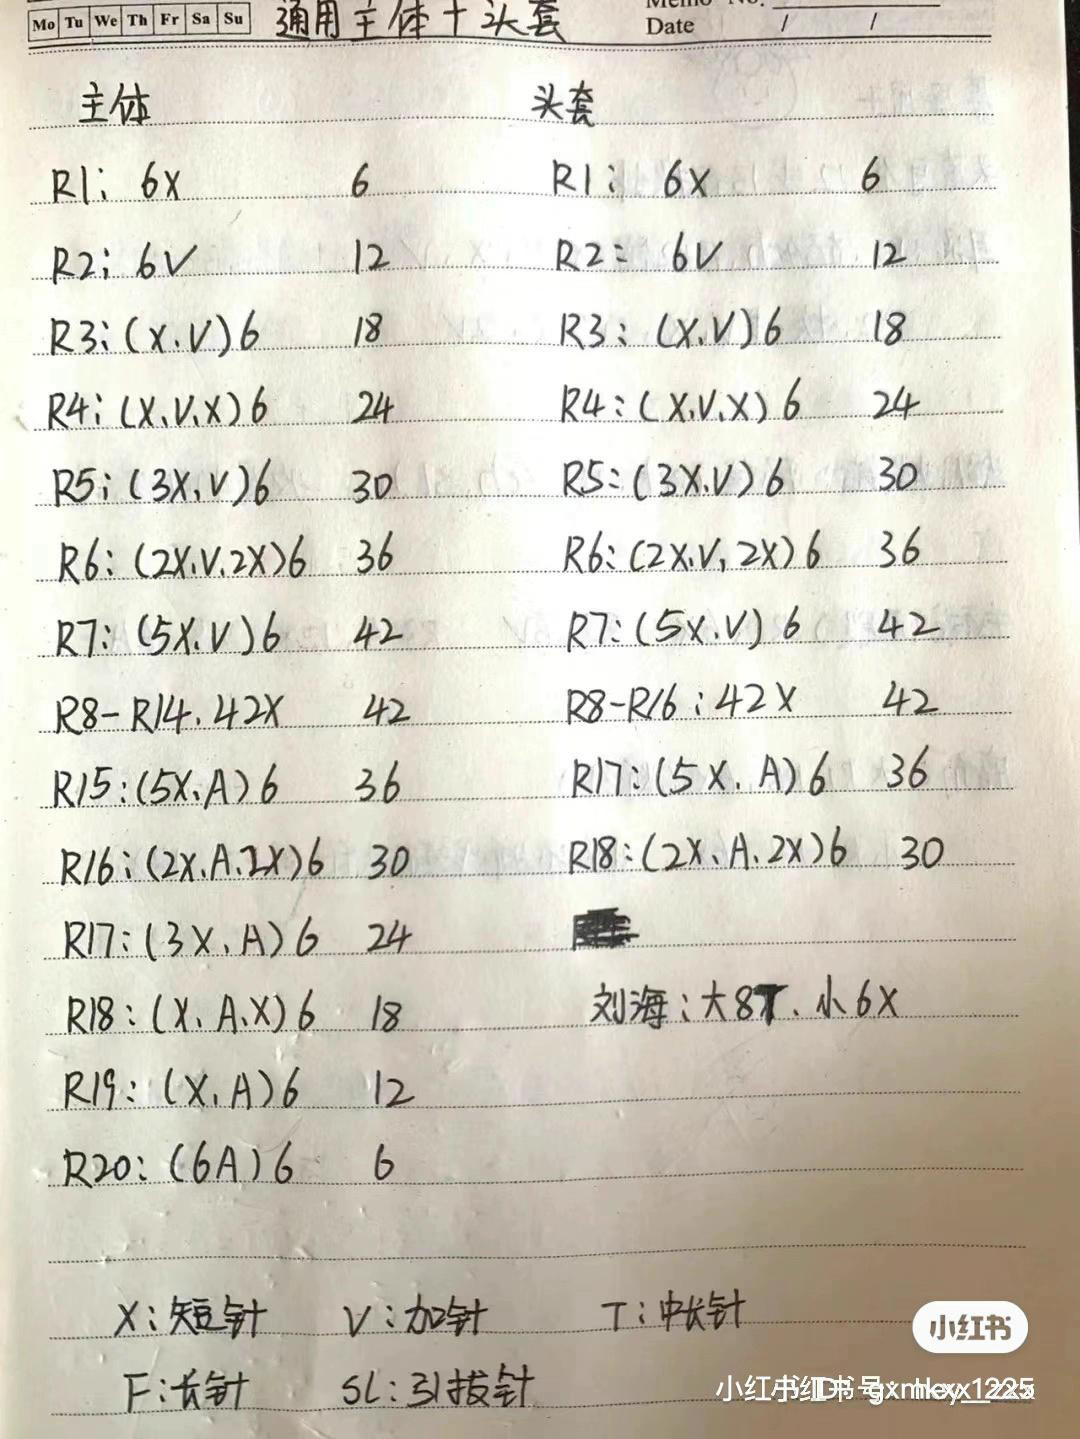 Mo Tu We Th Fr Sa Su
通用主体+头套
Memo No.
Date / /
主体 头套
R1: 6X 6 R1: 6X 6
R2: 6V 12 R2: 6V 12
R3: (X.V)6 18 R3: (X.V)6 18
R4: (X.V.X)6 24 R4: (X.V.X)6 24
R5: (3X.V)6 30 R5: (3X.V)6 30
R6: (2X.V.2X)6 36 R6: (2X.V.2X)6 36
R7: (5X.V)6 42 R7: (5X.V)6 42
R8-R14. 42X 42 R8-R16: 42X 42
R15: (5X.A)6 36 R17: (5X.A)6 36
R16: (2X.A.2X)6 30 R18: (2X.A.2X)6 30
R17: (3X.A)6 24
R18: (X.A.X)6 18 刘海: 大8T、小6X
R19: (X.A)6 12
R20: (6A)6 6
X: 短针 V: 加针 T: 中长针
F: 长针 SL: 引拔针
小红书